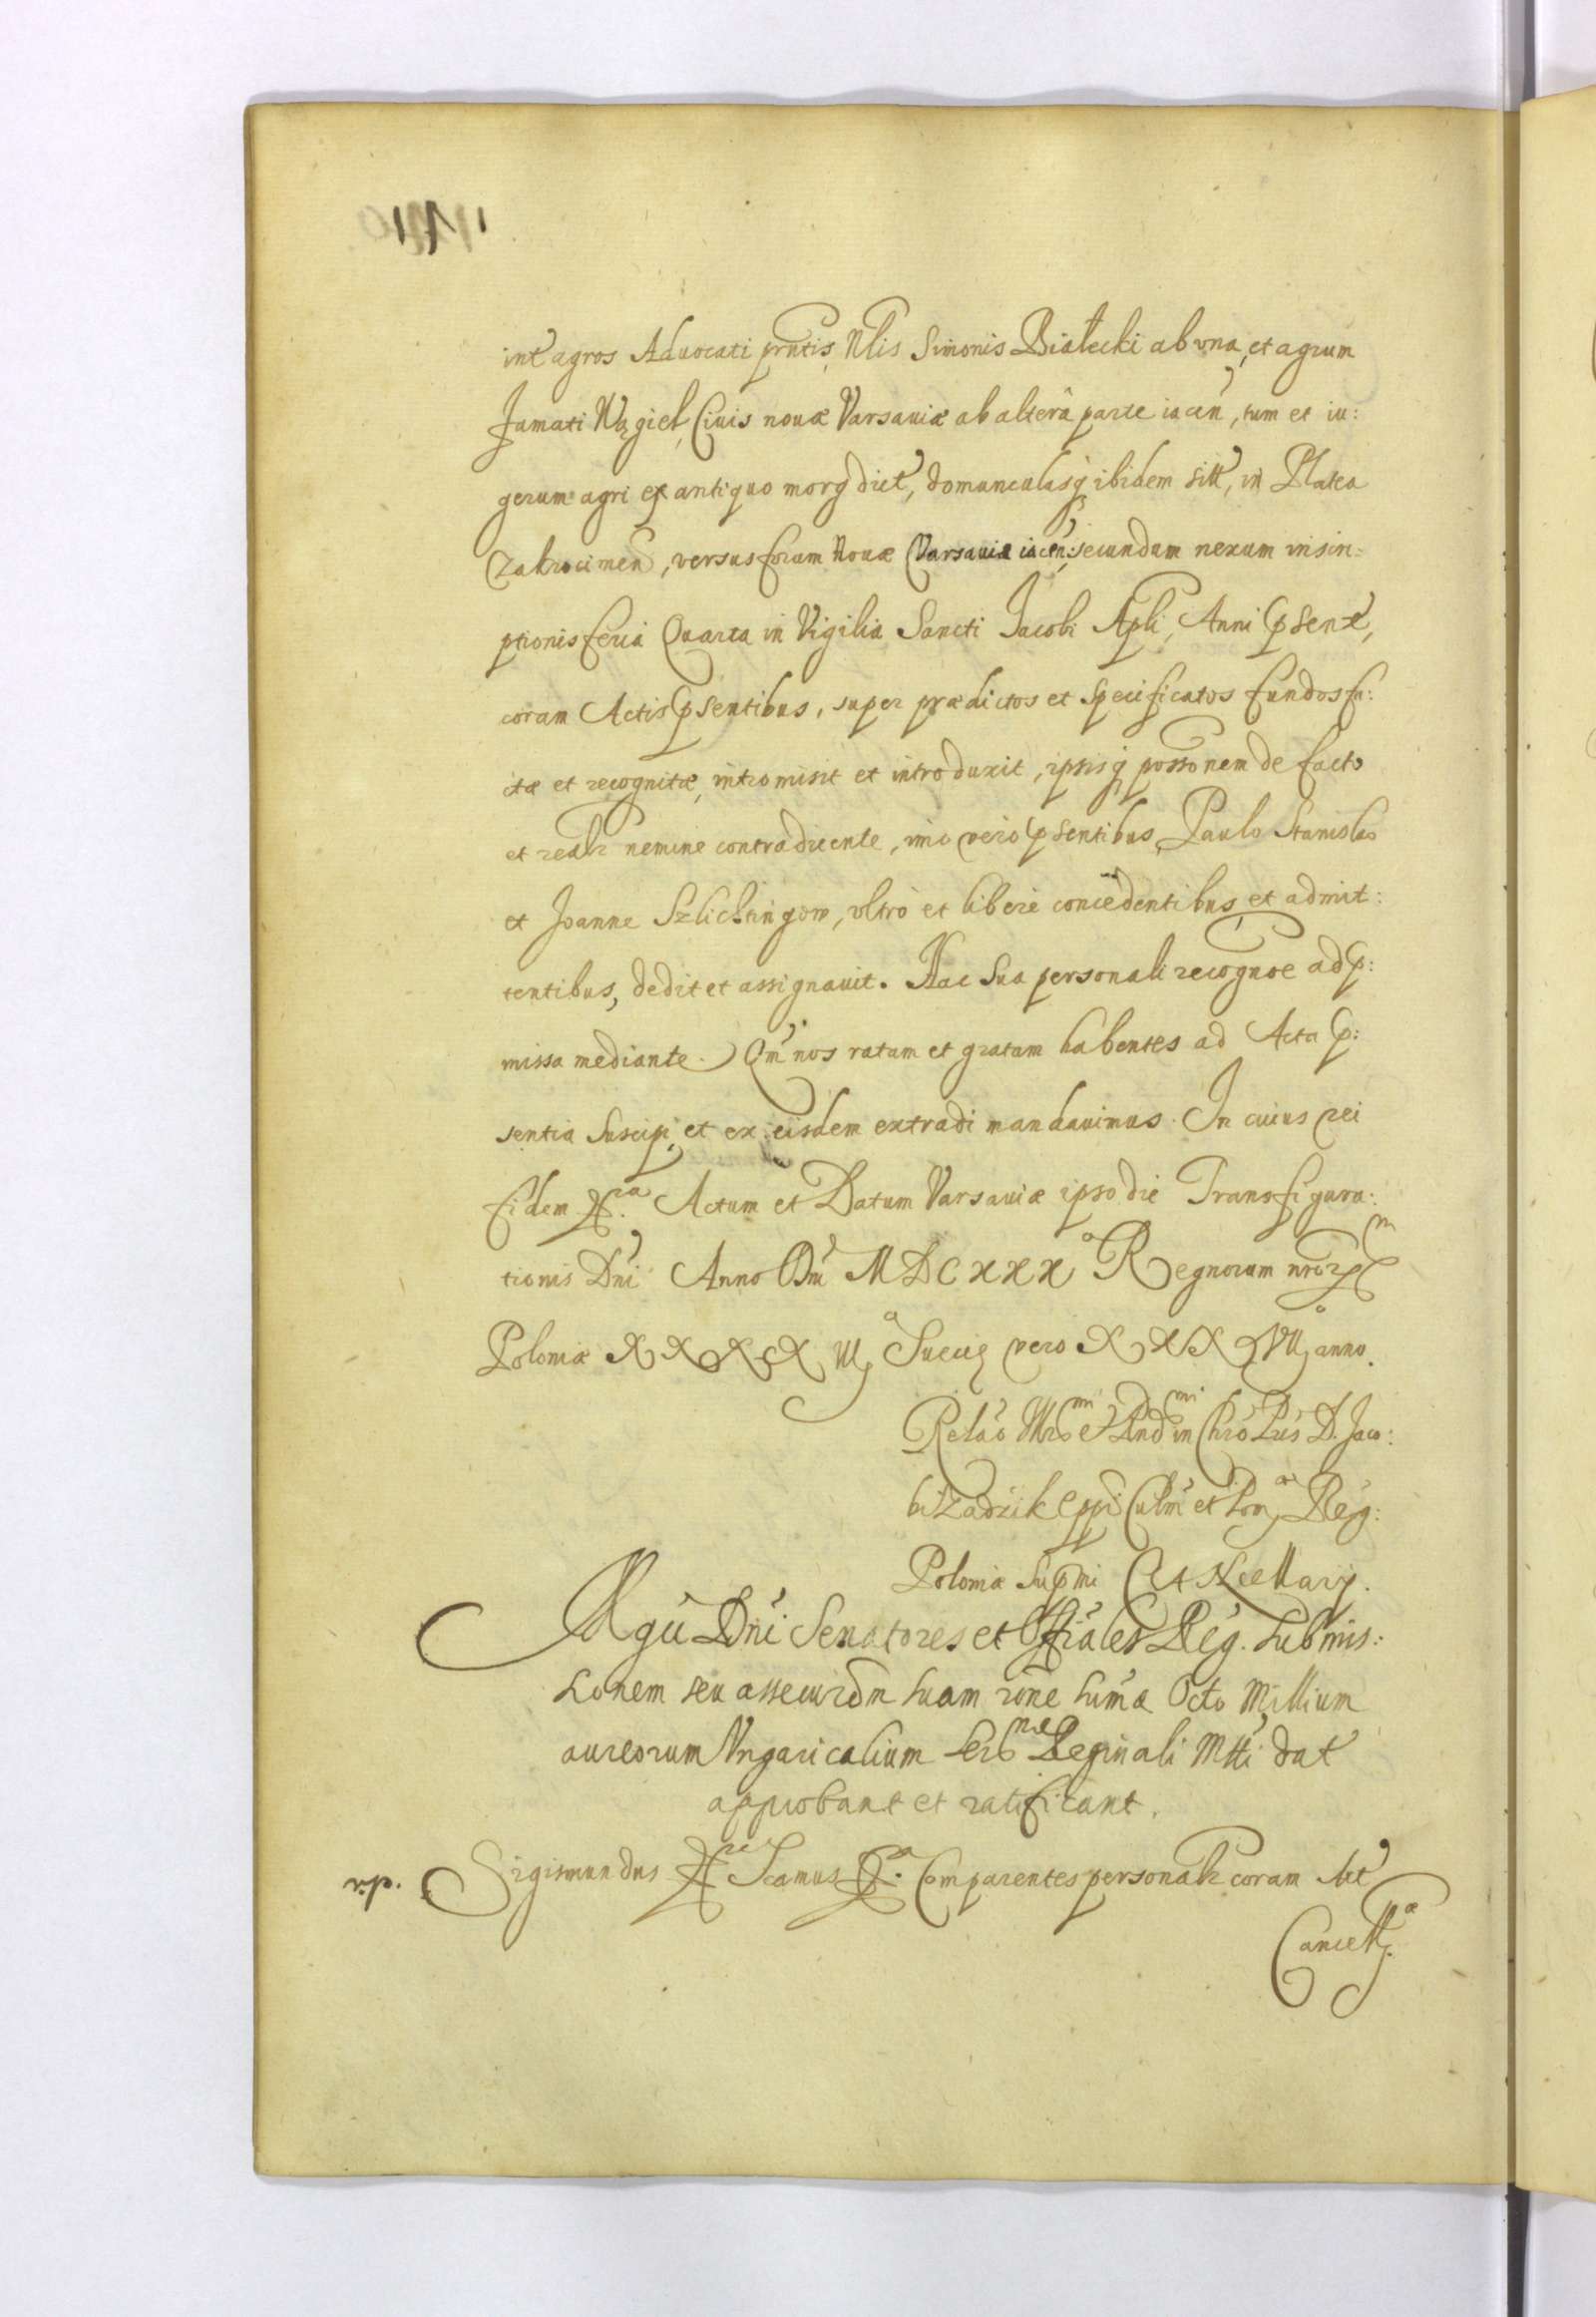 111
int agros Aduocati prntis, Nlis Simonis Białecki ab vna, et agrum
Famati Węgieł, Ciuis nouæ Varsauiæ ab alterâ parte iacen, tum et iu:
gerum agri ex antiquo morg dict, domunculasq ibidem sitt, in Platea
Zakrocimen, versus forum Nouæ Varsauiæ iacen: secundum nexum inscri=
ptionis feria Quarta in Vigilia Sancti Jacobi Apli, Anni psent,
coram Actis psentibus, super prædictos et specificatos fundos fa:
ctæ et recognitæ, intromisit et introduxit, ipsisq possonem de facto
et realr nemine contradicente, imo vero psentibus, Paulo Stanislao
et Joanne Szlichtingow, vltrò et liberè concedentibus, et admit:
tentibus, dedit et assignauit. Hac sua personali recognoe ad p:
missa mediante. Qm nos ratam et gratam habentes ad Acta p:
sentia suscipi, et ex eisdem extradi mandauimus. In cuius rei
fidem &ra. Actum et Datum Varsauiæ ipso die Transfigura:
tionis Dni Anno Dni MDCXXXo Regnorum nror
Poloniæ XXXXIII, Sueciæ vero XXXVII anno.
Relao Illrmi et Rndmi in Chro Pris D. Jaco:
bi Zadzik Eppi Culm et Pom, Reg:
Poloniæ supmi CANcellarij.
Mgci Dni Senatores et Offiales Reg. submis:
sionem seu assecuraom suam rone sumæ Octo Millium
aureorum Vngaricalium Sermæ Reginali Mtti dat
approbant et ratificant.
r.p. Sigismundus &re Scamus &a. Comparentes personalr coram Act
Cancellæ.